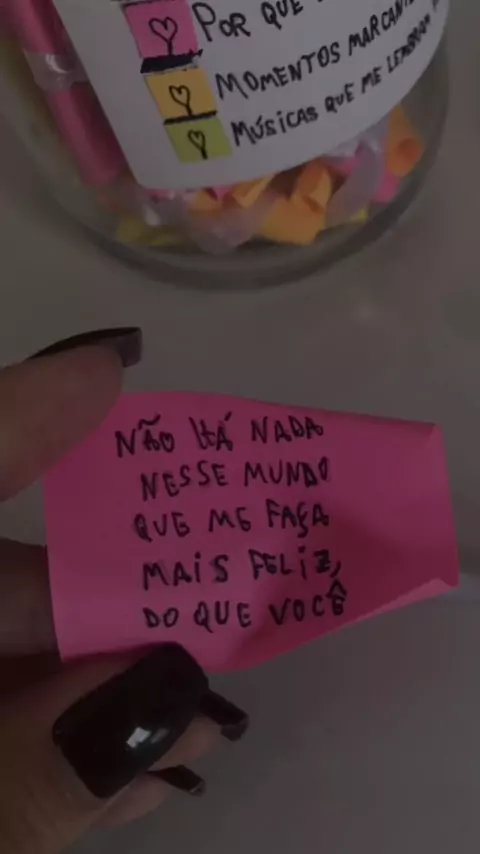 POR QUE
MOMENTOS MARCANTES
MÚSICAS QUE ME LEMBRAM
NÃO HÁ NADA
NESSE MUNDO
QUE ME FAÇA
MAIS FELIZ,
DO QUE VOCÊ